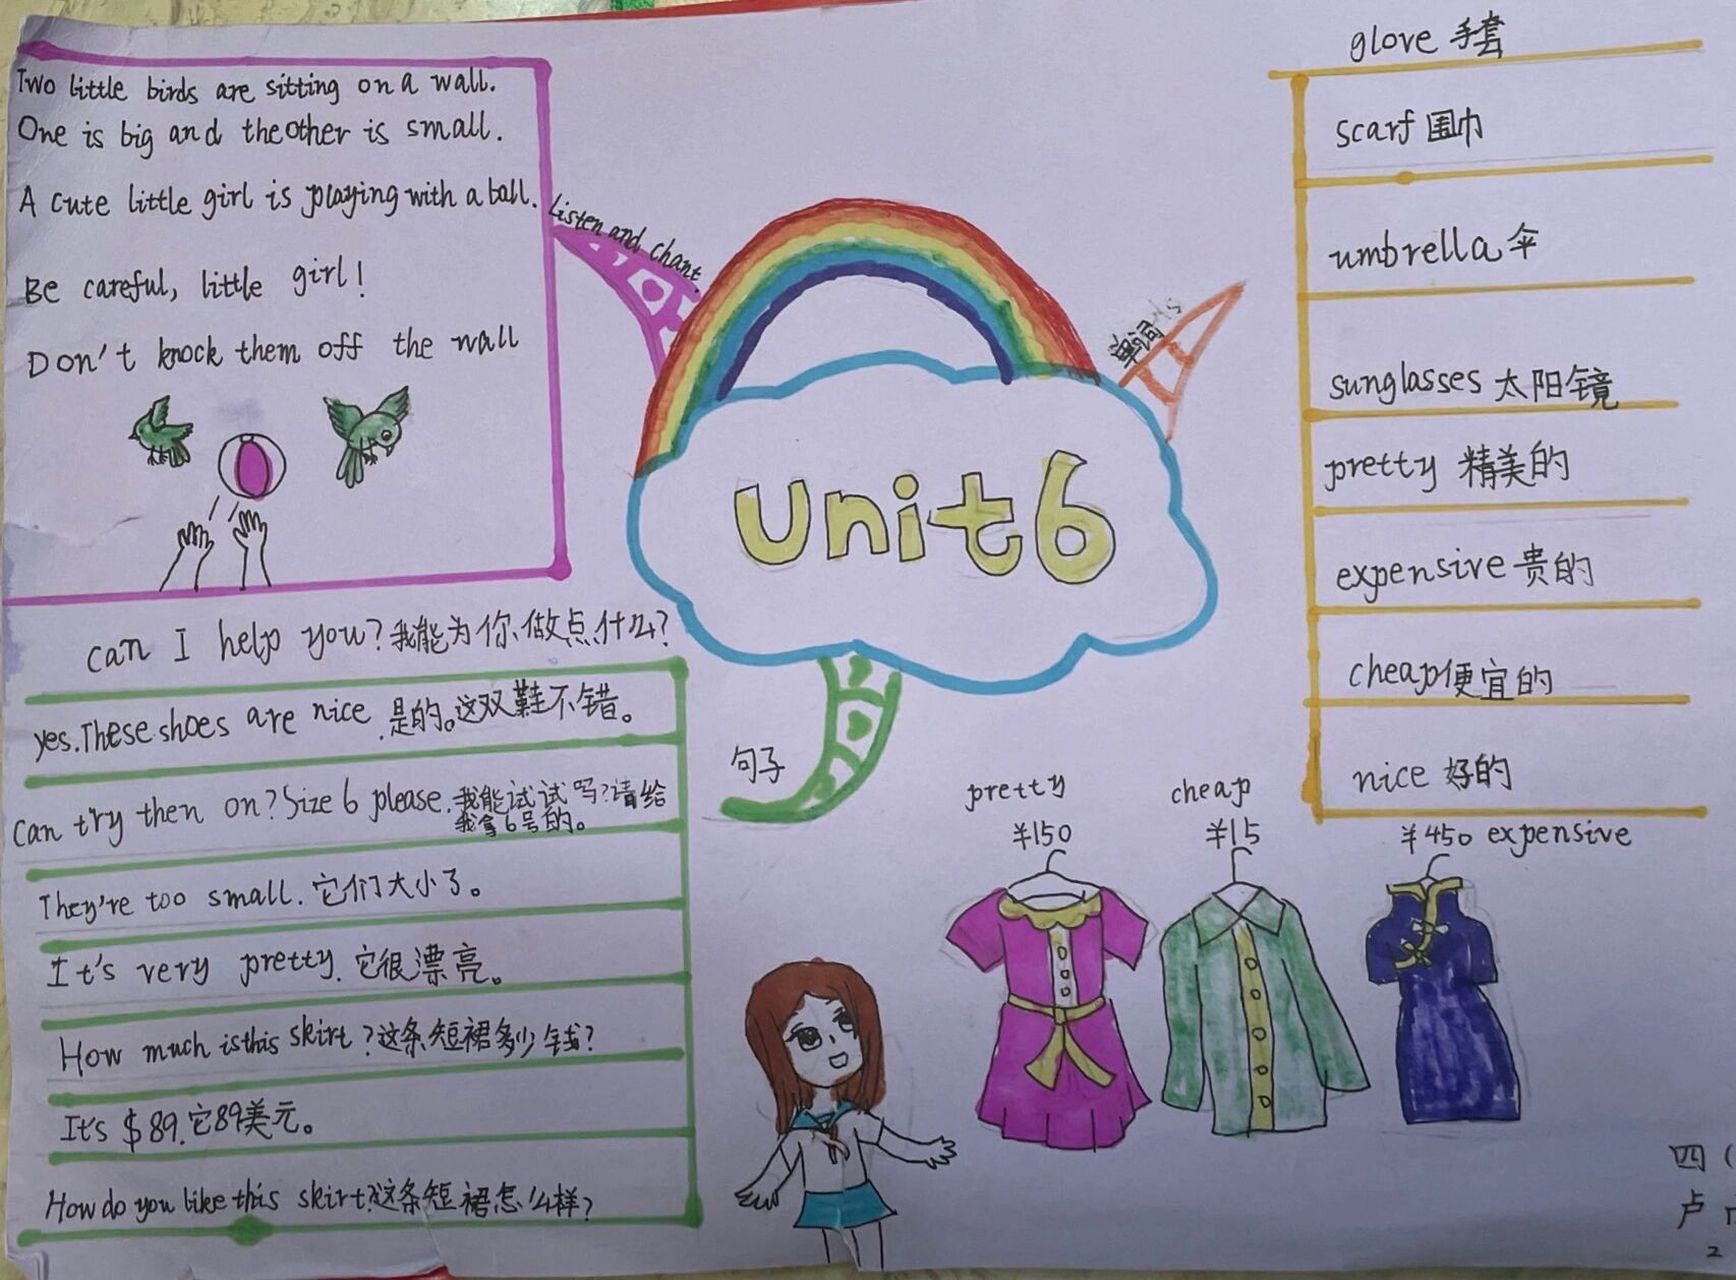 Two little birds are sitting on a wall.
One is big and the other is small.
A cute little girl is playing with a ball.
Be careful, little girl!
Don't knock them off the wall
Listen and chant
Unit6
单词
glove 手套
scarf 围巾
umbrella 伞
sunglasses 太阳镜
pretty 精美的
expensive 贵的
cheap 便宜的
nice 好的
can I help you? 我能为你做点什么?
yes. These shoes are nice. 是的。这双鞋不错。
can try then on? Size 6 please. 我能试试吗?请给
我拿6号的。
They're too small. 它们大小了。
It's very pretty. 它很漂亮。
How much is this skirt? 这条短裙多少钱?
It's $89. 它89美元。
How do you like this skirt? 这条短裙怎么样?
句子
pretty
¥150
cheap
¥15
¥450 expensive
四(
卢
2